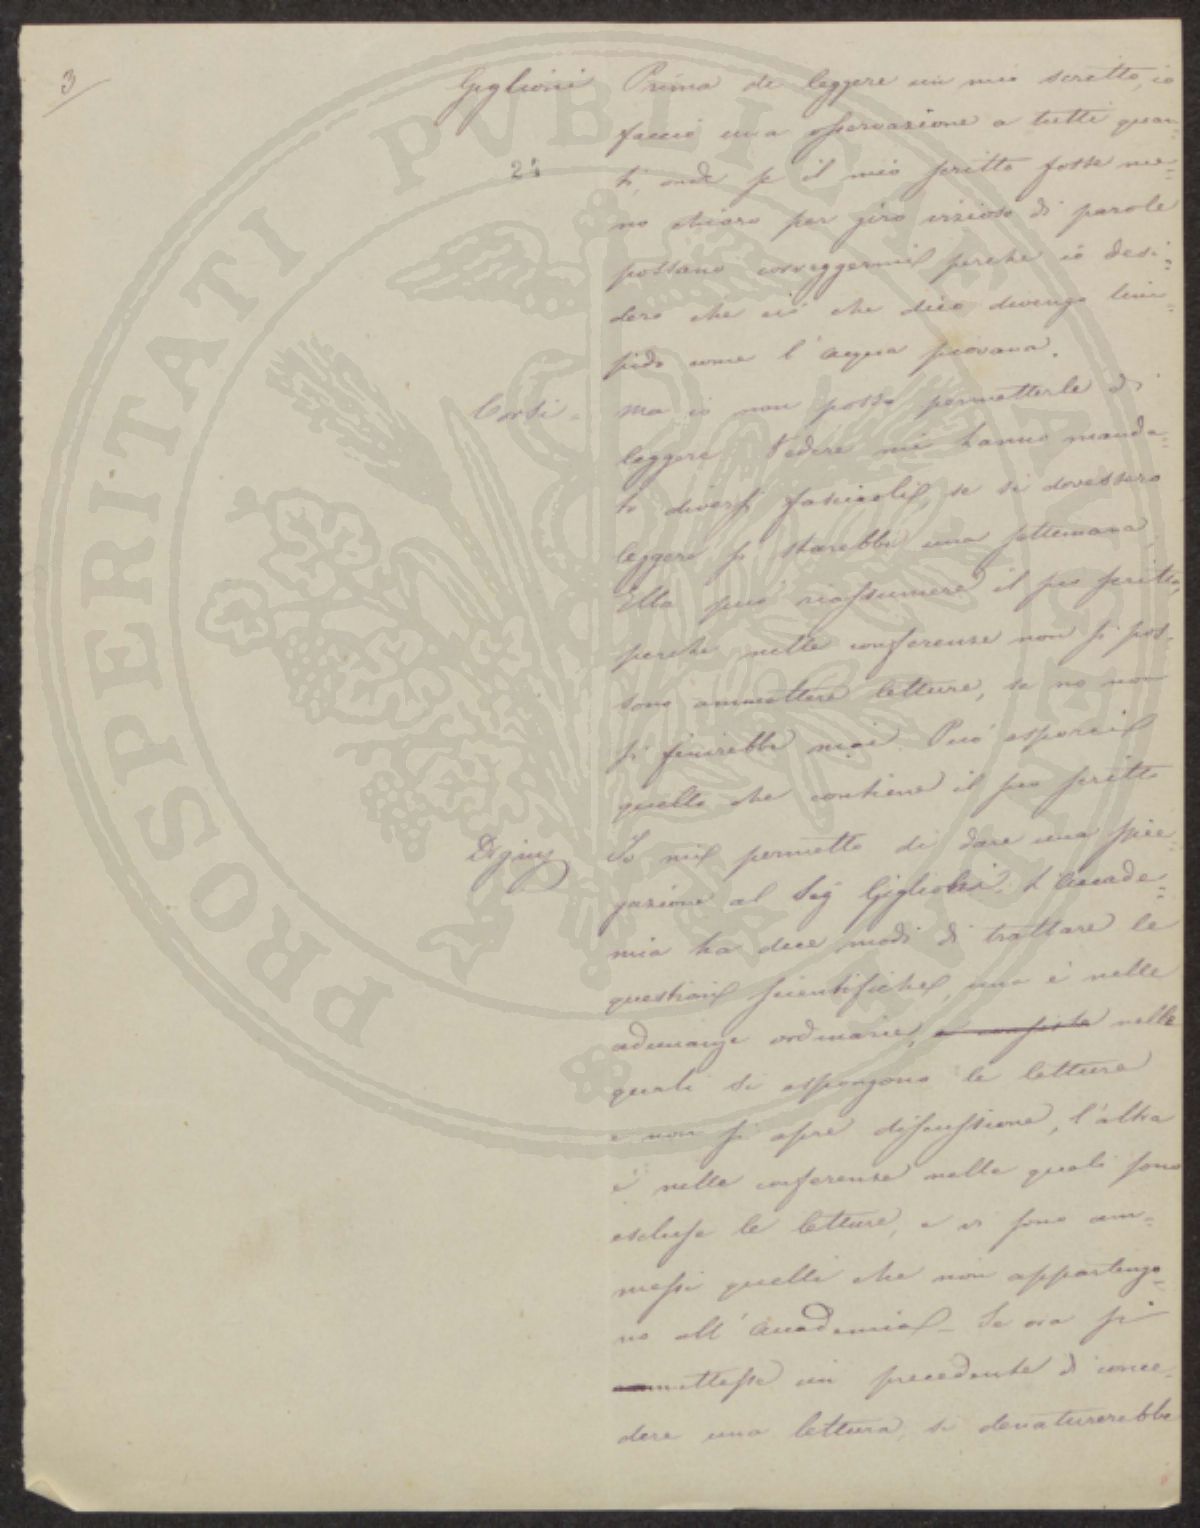 3
Giglioni Prima di leggere un mio scritto, io
faccio una osservazione a tutti quan=
24
ti, onde se il mio scritto fosse me=
no chiaro per giro vizioso di parole
possano correggermi perché io desi=
dero che ciò che dico divenga lim=
pido come l'acqua piovana.
Corsi - Ma io non posso permetterle di
leggere. Vedere mi hanno manda=
to diversi fascicoli, se si dovessero
leggere si starebbe una settimana.
Ella può riassumere il suo scritto,
perché nelle conferenze non si pos=
sono ammettere letture, se no non
si finirebbe mai. Può esporci
quello che contiene il suo scritto
Io mi permetto di dare una spie=
gazione al Sig Giglioni. L'Accade=
mia ha dece modi di trattare le
questioni scientifiche, uno è nelle
adunanze ordinarie, nelle
quali si espongono le letture
e non si apre discussione, l'altra
è nelle conferenze nelle quali sono
escluse le letture, e vi sono am=
messi quelli che non appartengo=
no all'Accademia - Se ora si
mettesse un precedente di conce=
dere una lettura, si denaturerebbe
PROSPERITATI PVBLICAE